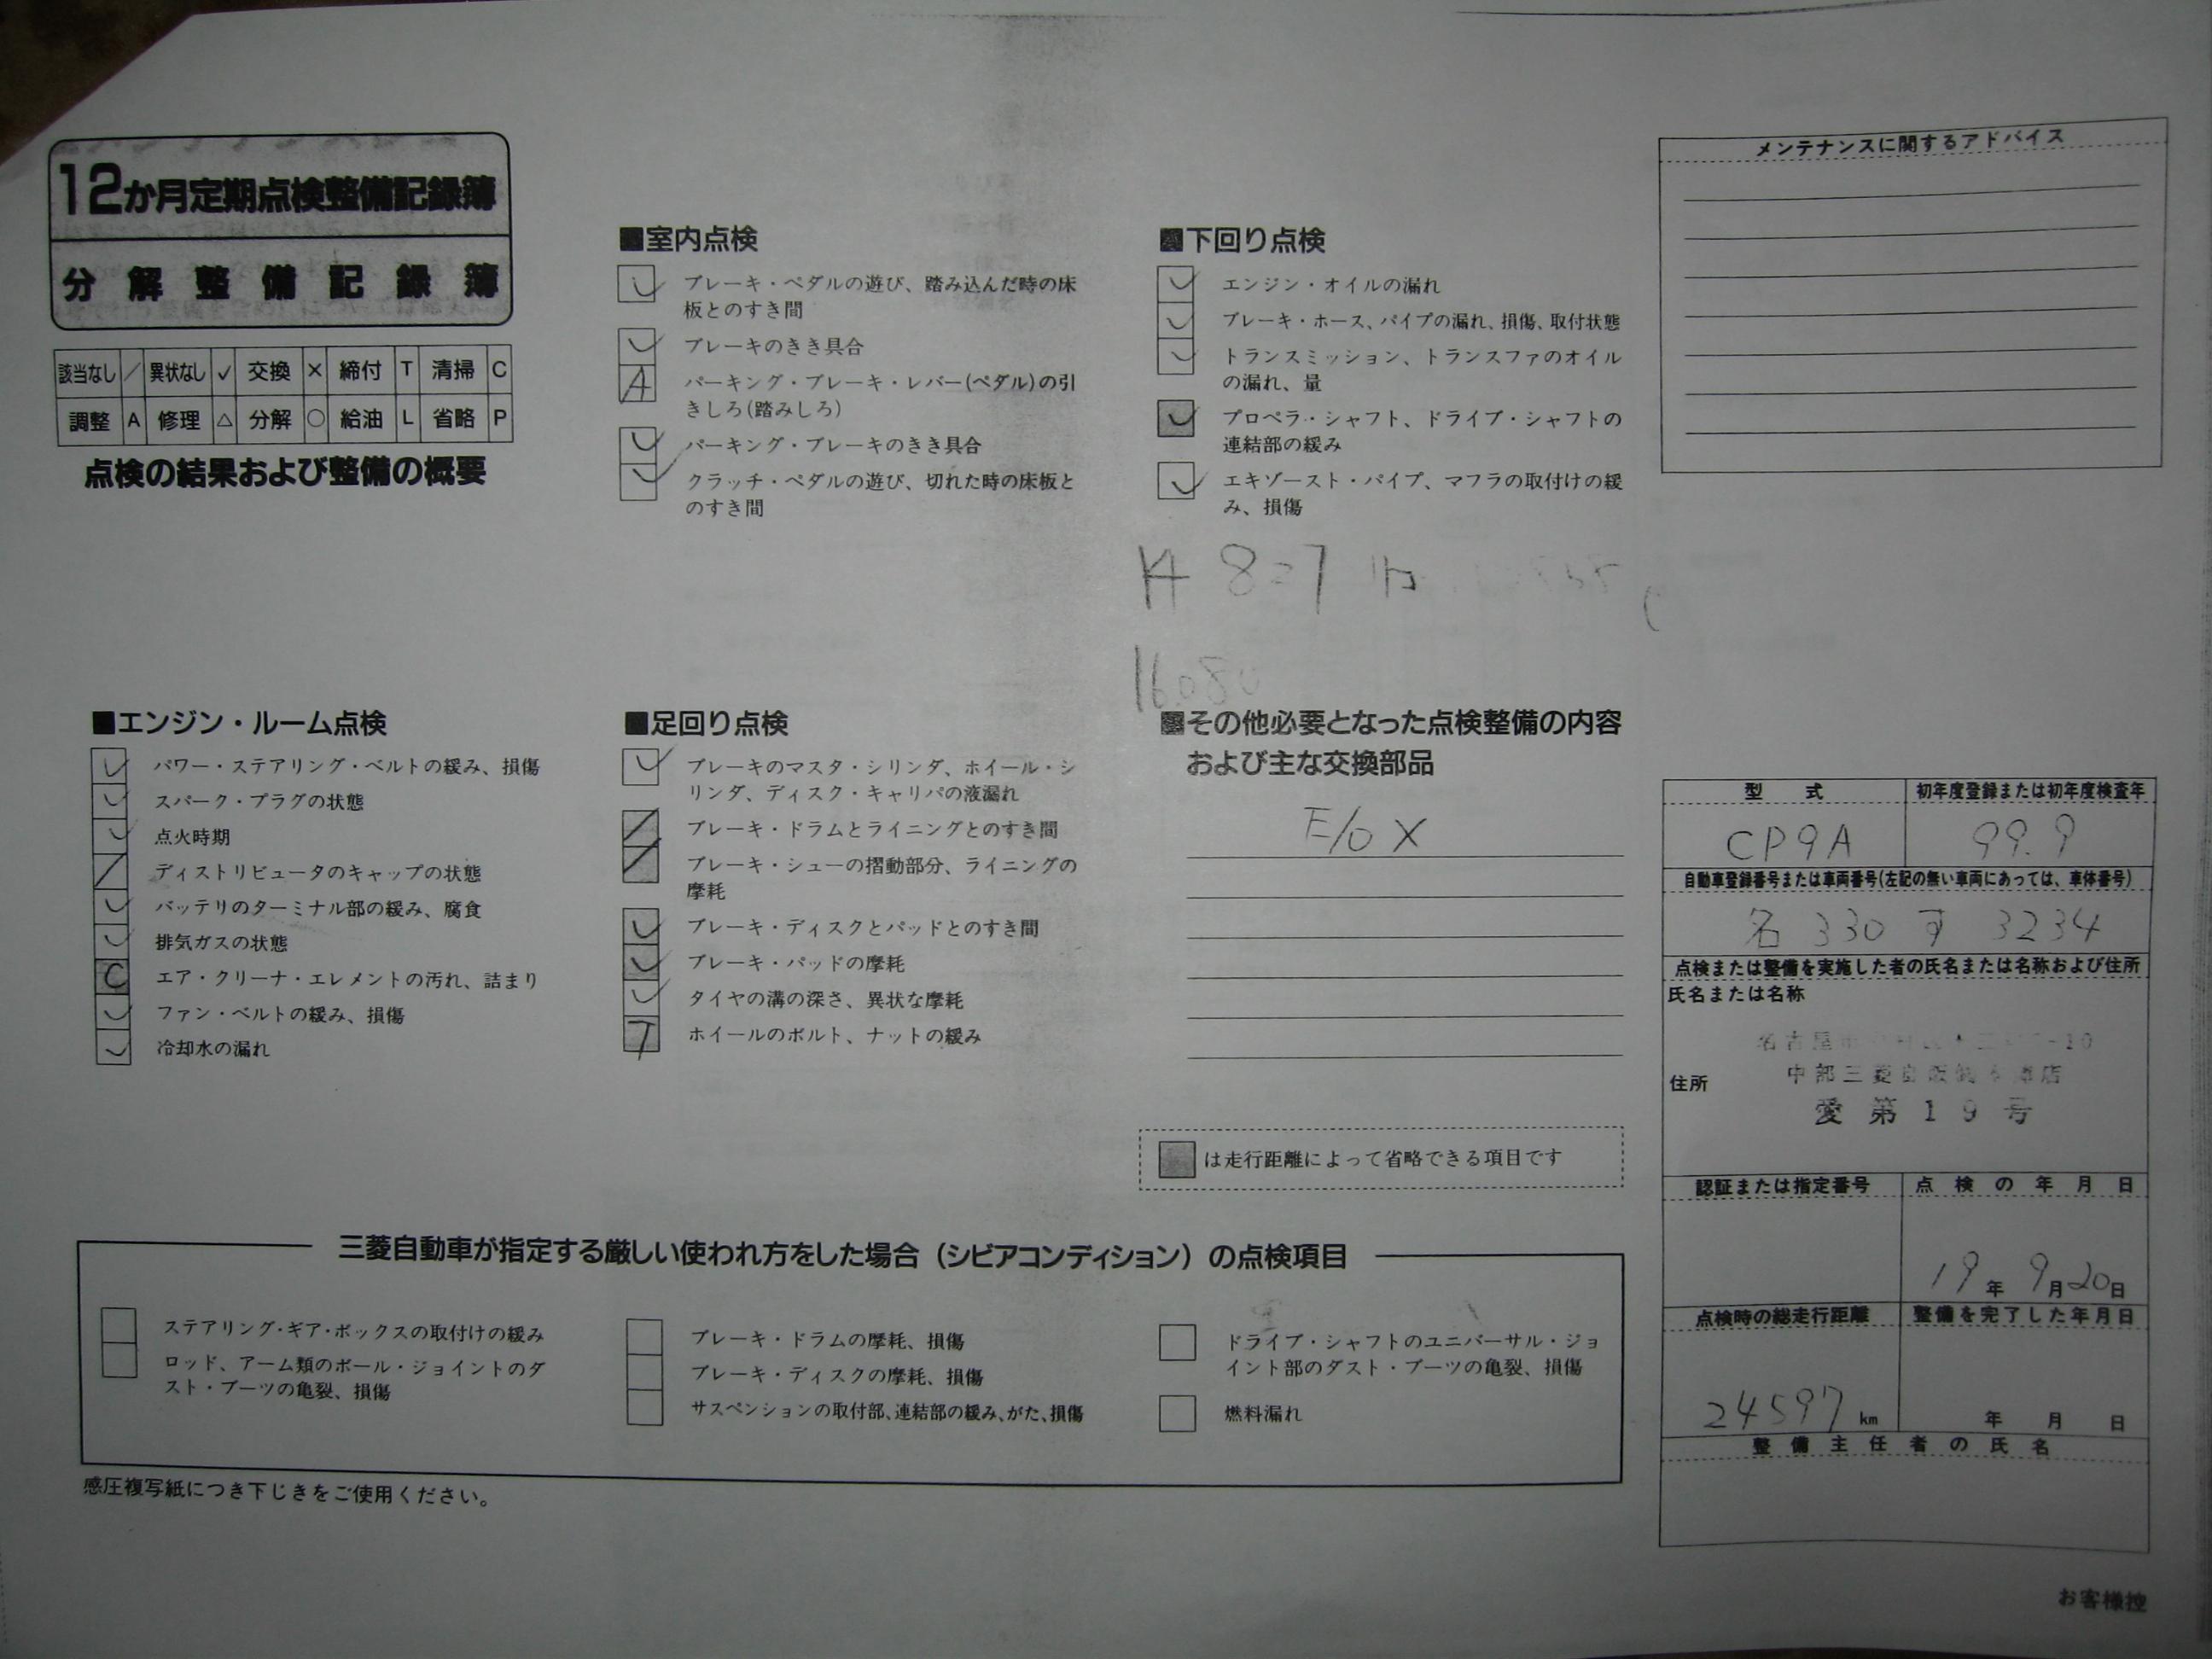 12か月定期点検整備記録簿
分解整備記録簿
該当なし ／ 異状なし ✓ 交換 × 締付 T 清掃 C
調整 A 修理 △ 分解 ○ 給油 L 省略 P
点検の結果および整備の概要
■室内点検
✓ ブレーキ・ペダルの遊び、踏み込んだ時の床
板とのすき間
✓ ブレーキのきき具合
A パーキング・ブレーキ・レバー(ペダル)の引
きしろ(踏みしろ)
✓ パーキング・ブレーキのきき具合
✓ クラッチ・ペダルの遊び、切れた時の床板と
のすき間
■下回り点検
✓ エンジン・オイルの漏れ
✓ ブレーキ・ホース、パイプの漏れ、損傷、取付状態
✓ トランスミッション、トランスファのオイル
の漏れ、量
✓ プロペラ・シャフト、ドライブ・シャフトの
連結部の緩み
✓ エキゾースト・パイプ、マフラの取付けの緩
み、損傷
メンテナンスに関するアドバイス
■エンジン・ルーム点検
✓ パワー・ステアリング・ベルトの緩み、損傷
✓ スパーク・プラグの状態
✓ 点火時期
／ ディストリビュータのキャップの状態
✓ バッテリのターミナル部の緩み、腐食
✓ 排気ガスの状態
C エア・クリーナ・エレメントの汚れ、詰まり
✓ ファン・ベルトの緩み、損傷
✓ 冷却水の漏れ
■足回り点検
✓ ブレーキのマスタ・シリンダ、ホイール・シ
リンダ、ディスク・キャリパの液漏れ
／ ブレーキ・ドラムとライニングとのすき間
／ ブレーキ・シューの摺動部分、ライニングの
摩耗
✓ ブレーキ・ディスクとパッドとのすき間
✓ ブレーキ・パッドの摩耗
✓ タイヤの溝の深さ、異状な摩耗
T ホイールのボルト、ナットの緩み
■その他必要となった点検整備の内容
および主な交換部品
E/O X
は走行距離によって省略できる項目です
型 式 初年度登録または初年度検査年
CP9A 99.9
自動車登録番号または車両番号(左記の無い車両にあっては、車体番号)
名 330 す 3234
点検または整備を実施した者の氏名または名称および住所
氏名または名称
名古屋
住所 中部三菱
愛第19号
認証または指定番号 点検の年月日
19年 9月20日
点検時の総走行距離 整備を完了した年月日
24597 km 年 月 日
整備主任者の氏名
三菱自動車が指定する厳しい使われ方をした場合（シビアコンディション）の点検項目
ステアリング・ギア・ボックスの取付けの緩み
ロッド、アーム類のボール・ジョイントのダ
スト・ブーツの亀裂、損傷
ブレーキ・ドラムの摩耗、損傷
ブレーキ・ディスクの摩耗、損傷
サスペンションの取付部、連結部の緩み、がた、損傷
ドライブ・シャフトのユニバーサル・ジョ
イント部のダスト・ブーツの亀裂、損傷
燃料漏れ
感圧複写紙につき下じきをご使用ください。
お客様控